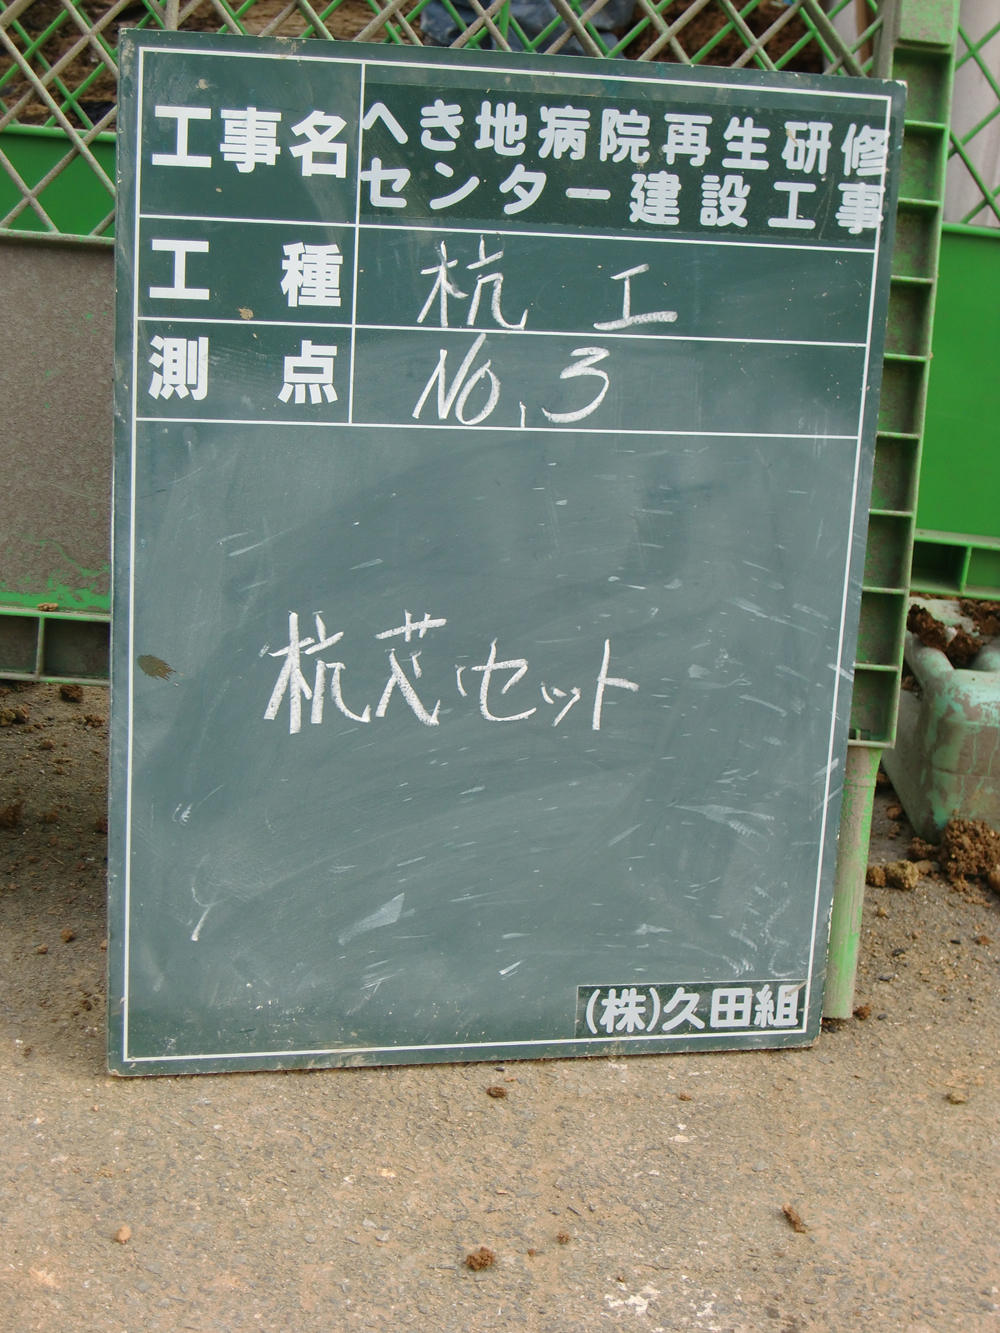 工事名 へき地病院再生研修
センター建設工事
工種 杭工
測点 No.3
杭芯セット
(株)久田組